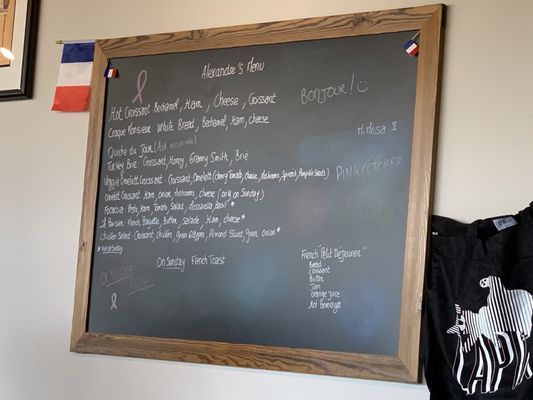 Alexandre's Menu
BONJOUR!
Hot Croissant Bechamel, Ham, Cheese, Croissant
Croque Monsieur White Bread, Bechamel, Ham, cheese
Mimosa
Quiche du Jour (Ask associate)
Turkey Brie: Croissant, Honey, Granny Smith, Brie
PINK OCTOBER
Veggie Omelett Croissant Croissant, Omelett (cherry Tomato, cheese, Mushrooms, Spinach, Pumpkin Seeds)
Omelett Croissant Ham, onion, Mushrooms, cheese (only on Sunday)
Focaccia Pesto, Ham, Tomato, Salad, Mozzarella *
Le Parisien French Baguette, Butter, Salade, Ham, cheese *
chicken Salad Croissant, chicken, green Pepper, Almond Sliced, green onion *
* Not on Sunday
On Sunday French Toast
French "Petit Dejeuner"
Bread
Croissant
Butter
Jam
Orange Juice
Hot Beverage
OCTOBRE
ROSE